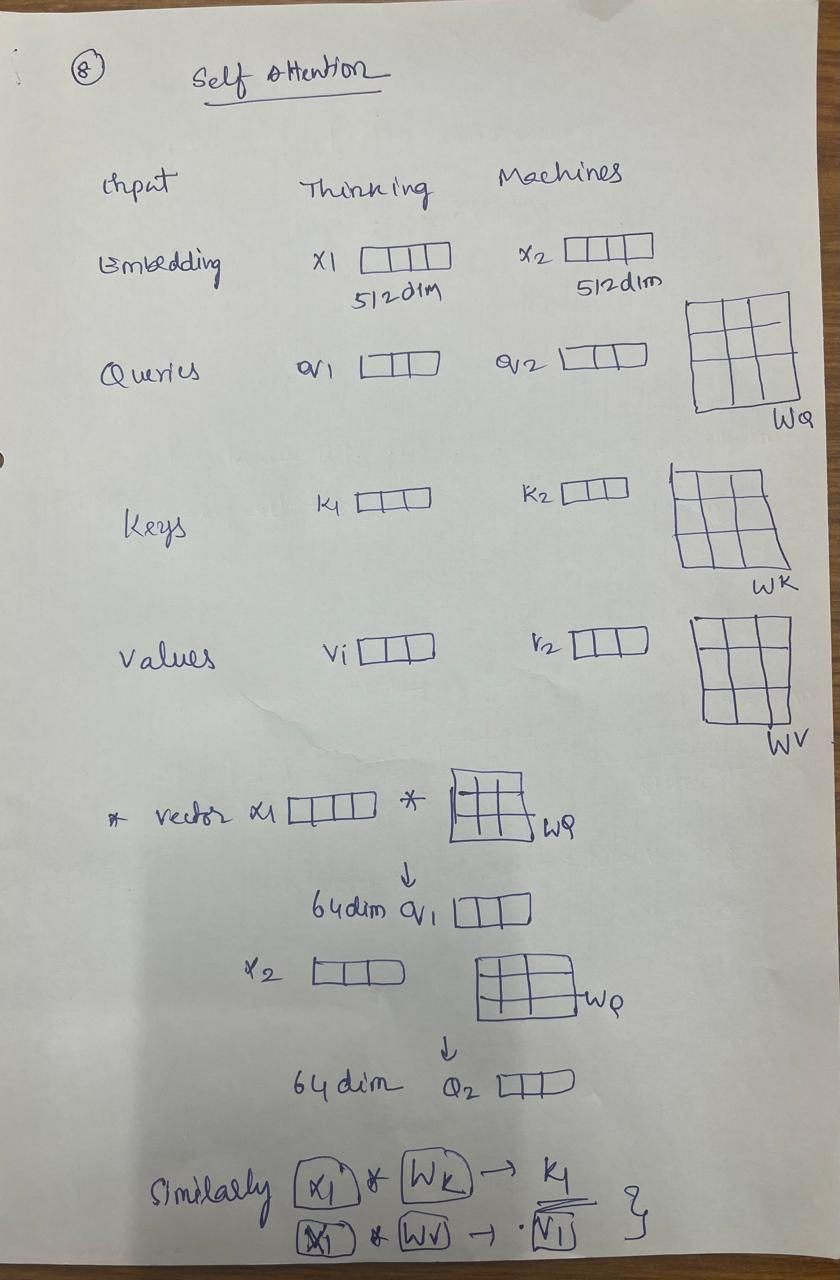 8 Self Attention
Input Thinking Machines
Embedding x1 x2
512 dim 512 dim
Queries q1 q2
WQ
Keys K1 K2
WK
Values V1 V2
WV
* vector x1 * WQ
↓
64 dim q1
x2 WQ
↓
64 dim Q2
Similarly x1 * WK → K1
x1 * WV → V1 }